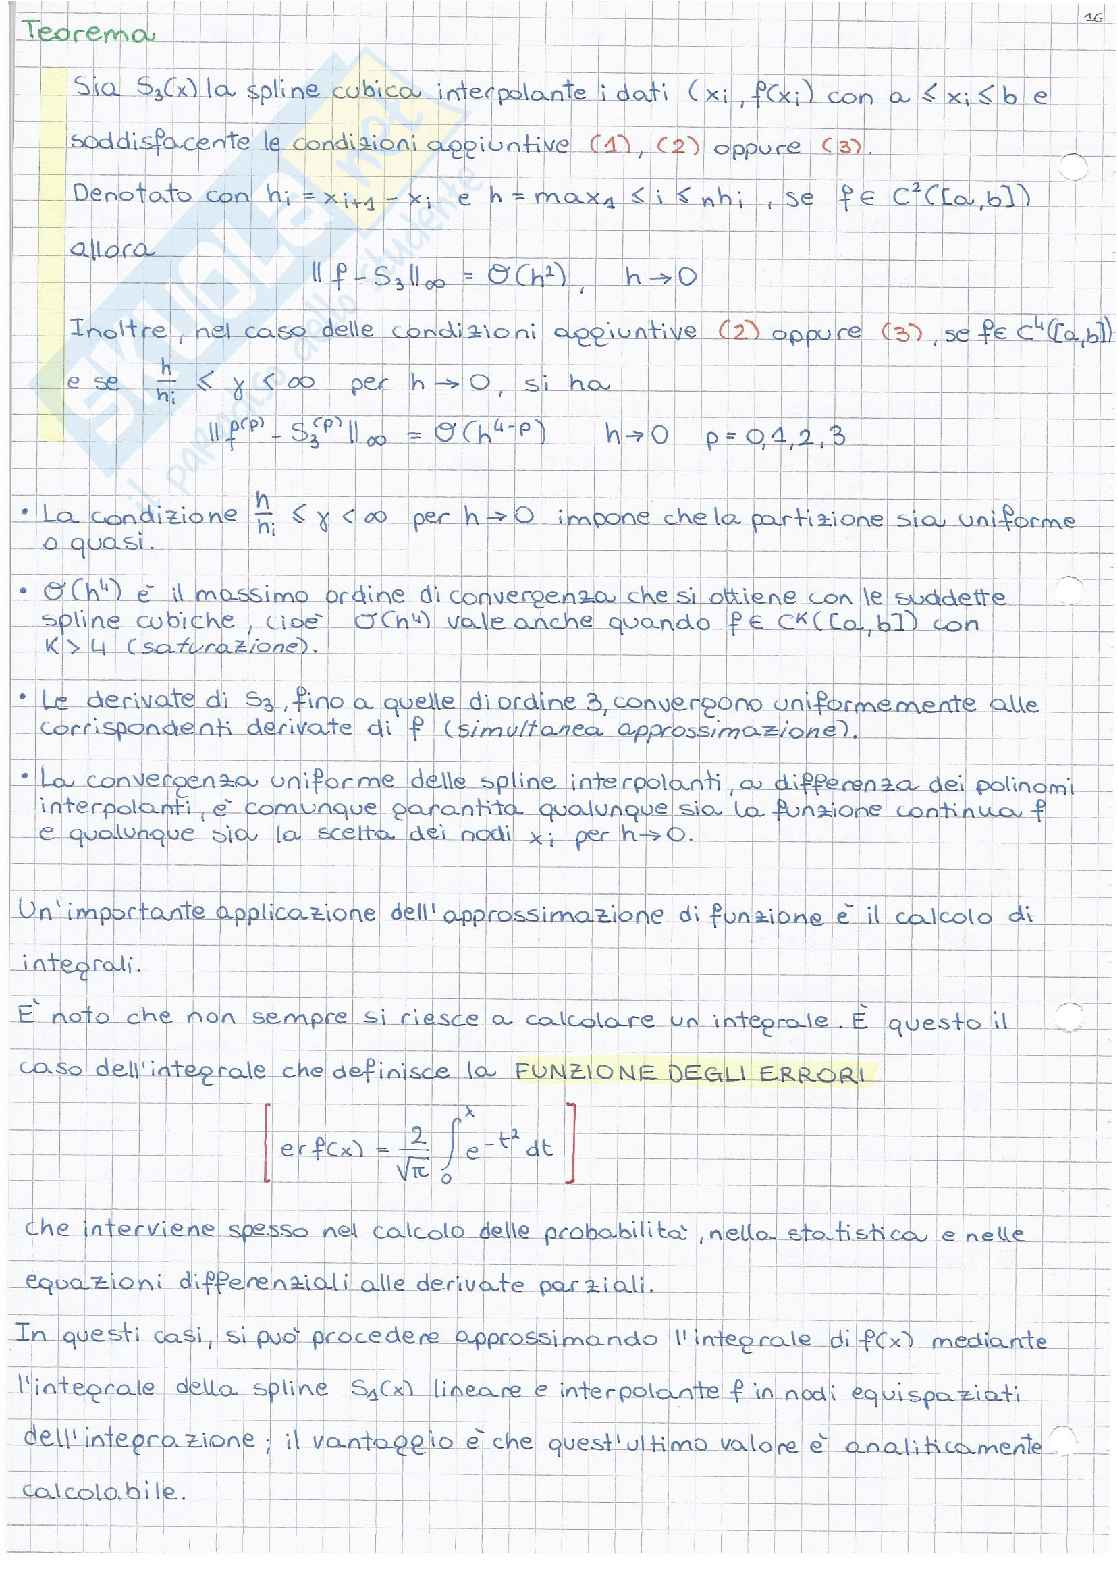 16
Teorema
Sia S₃(x) la spline cubica interpolante i dati (xᵢ, f(xᵢ) con a ≤ xᵢ ≤ b e
soddisfacente le condizioni aggiuntive (1), (2) oppure (3).
Denotato con hᵢ = xᵢ₊₁ - xᵢ e h = max₁ ≤ i ≤ nhᵢ, se f ∈ C²([a,b])
allora
‖f - S₃‖∞ = O(h²), h → 0
Inoltre, nel caso delle condizioni aggiuntive (2) oppure (3), se f ∈ C⁴([a,b])
e se h/hᵢ ≤ γ < ∞ per h → 0, si ha
‖f⁽ᵖ⁾ - S₃⁽ᵖ⁾‖∞ = O(h⁴⁻ᵖ) h → 0 p = 0,1,2,3
• La condizione h/hᵢ ≤ γ < ∞ per h → 0 impone che la partizione sia uniforme
o quasi.
• O(h⁴) è il massimo ordine di convergenza che si ottiene con le suddette
spline cubiche, cioè O(h⁴) vale anche quando f ∈ Cᴷ([a,b]) con
K > 4 (saturazione).
• Le derivate di S₃, fino a quelle di ordine 3, convergono uniformemente alle
corrispondenti derivate di f (simultanea approssimazione).
• La convergenza uniforme delle spline interpolanti, a differenza dei polinomi
interpolanti, è comunque garantita qualunque sia la funzione continua f
e qualunque sia la scelta dei nodi xᵢ per h → 0.
Un'importante applicazione dell'approssimazione di funzione è il calcolo di
integrali.
È noto che non sempre si riesce a calcolare un integrale. È questo il
caso dell'integrale che definisce la FUNZIONE DEGLI ERRORI
[erf(x) = 2/√π ∫₀ˣ e^-t² dt]
che interviene spesso nel calcolo delle probabilità, nella statistica e nelle
equazioni differenziali alle derivate parziali.
In questi casi, si può procedere approssimando l'integrale di f(x) mediante
l'integrale della spline S₁(x) lineare e interpolante f in nodi equispaziati
dell'integrazione; il vantaggio è che quest'ultimo valore è analiticamente
calcolabile.
SKUOLA.net
il paradiso dello studente